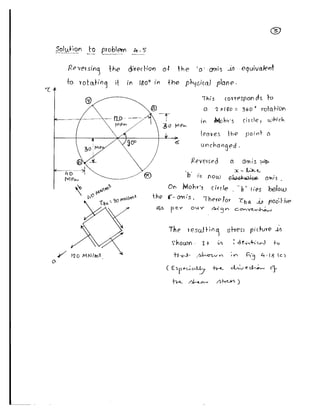 8
Solution to problem 4.5
Reversing the direction of the 'a' axis is equivalent
to rotating it in 180° in the physical plane.
This corresponds to
a 2x180 = 360° rotation
in Mohr's circle, which
leaves the point a
unchanged.
Reversed a axis
'b' is now axis.
On Mohr's circle, 'b' lies below
the σ-axis. Therefor τba is positive
as per our sign convention
The resulting stress picture is
shown. It is identical to
that shown in Fig 4-18 (c)
(Especially the direction of
the shear stress)
τ
120
MPa
30 MPa
30 MPa
90°
σ
40
MPa
b
40 MN/m²
τba = 30 MN/m²
120 MN/m²
a